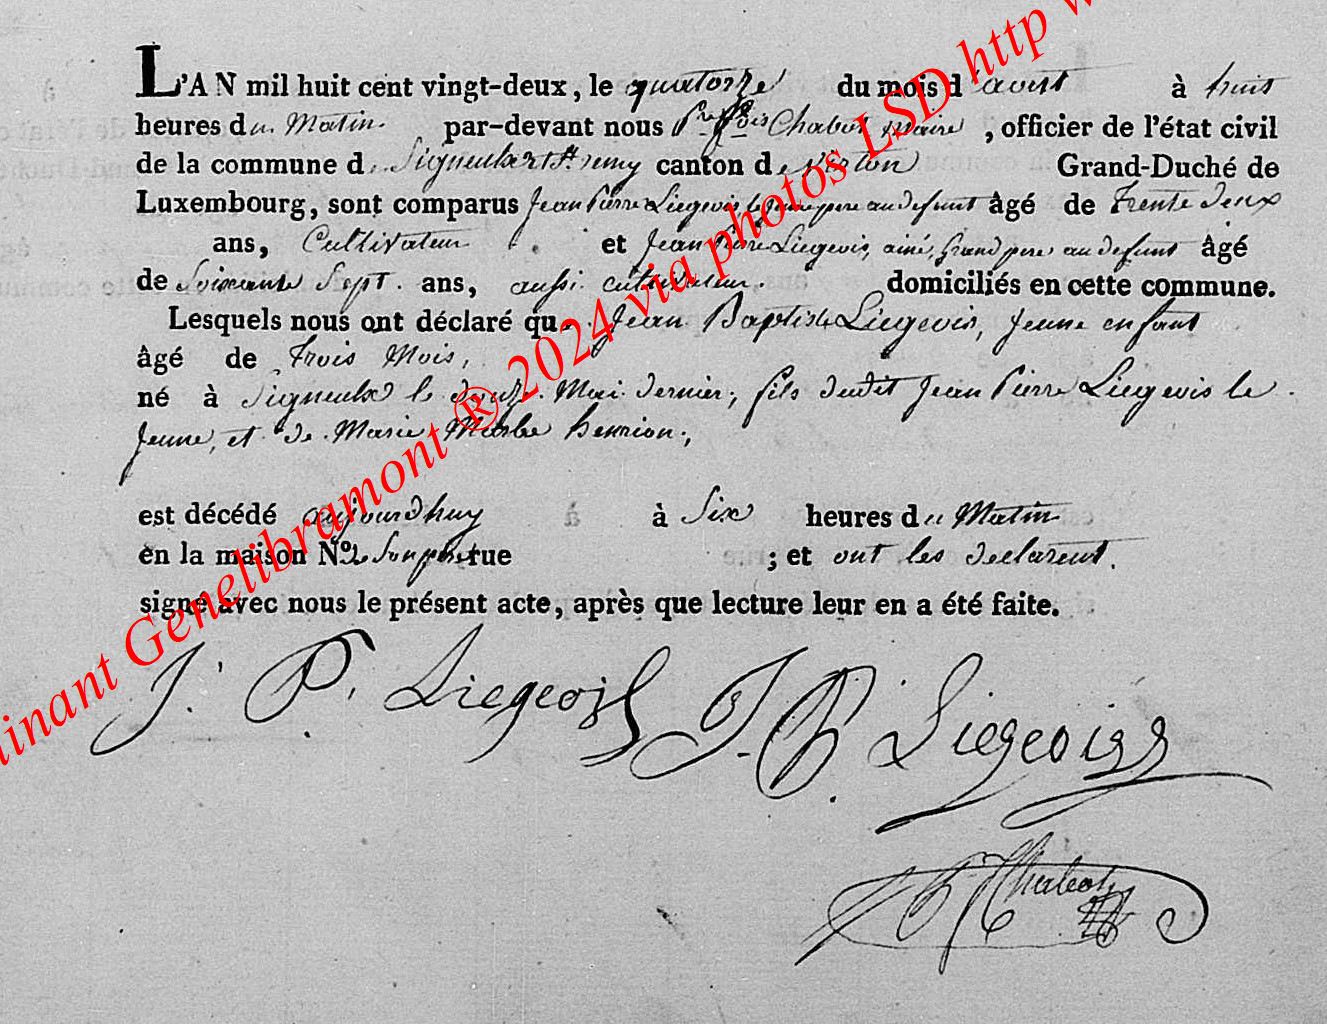 L'AN mil huit cent vingt-deux, le quatorze du mois d'aoust à huit
heures du Matin par-devant nous Pre. fois Chabot maire, officier de l'état civil
de la commune de Signeulx et St. remy canton de Virton Grand-Duché de
Luxembourg, sont comparus Jean Pierre Liegeois le Jeune pere au defunt âgé de Trente Deux
ans, Cultivateur et Jean Pierre Liegeois, ainé, Grand pere au defunt âgé
de Soixante Sept. ans, aussi cultivateur. domiciliés en cette commune.
Lesquels nous ont déclaré que Jean Baptiste Liegeois, Jeune enfant
âgé de Trois Mois,
né à Signeulx le douze Mai dernier; fils dudit Jean Pierre Liegeois le
Jeune, et de Marie Henrion;
est décédé aujourdhuy à Six heures du Matin
en la maison No. de Son pere rue ; et ont les declarent.
signé avec nous le présent acte, après que lecture leur en a été faite.
J. P. Liegeois J. P. Liegeois
Chabot
linant Genelibramont ® 2024 via photos LSD http w